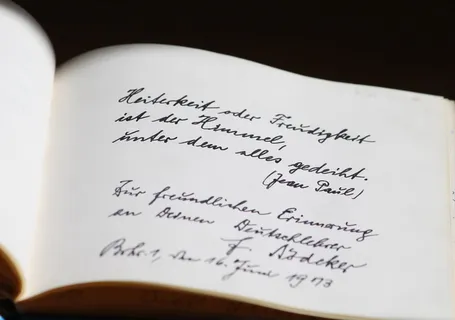 Heiterkeit oder Freudigkeit
ist der Himmel,
unter dem alles gedeiht.
(Jean Paul)
Zur freundlichen Erinnerung
an Deinen Deutschlehrer
F. Lödeker
den 16. Juni 1973